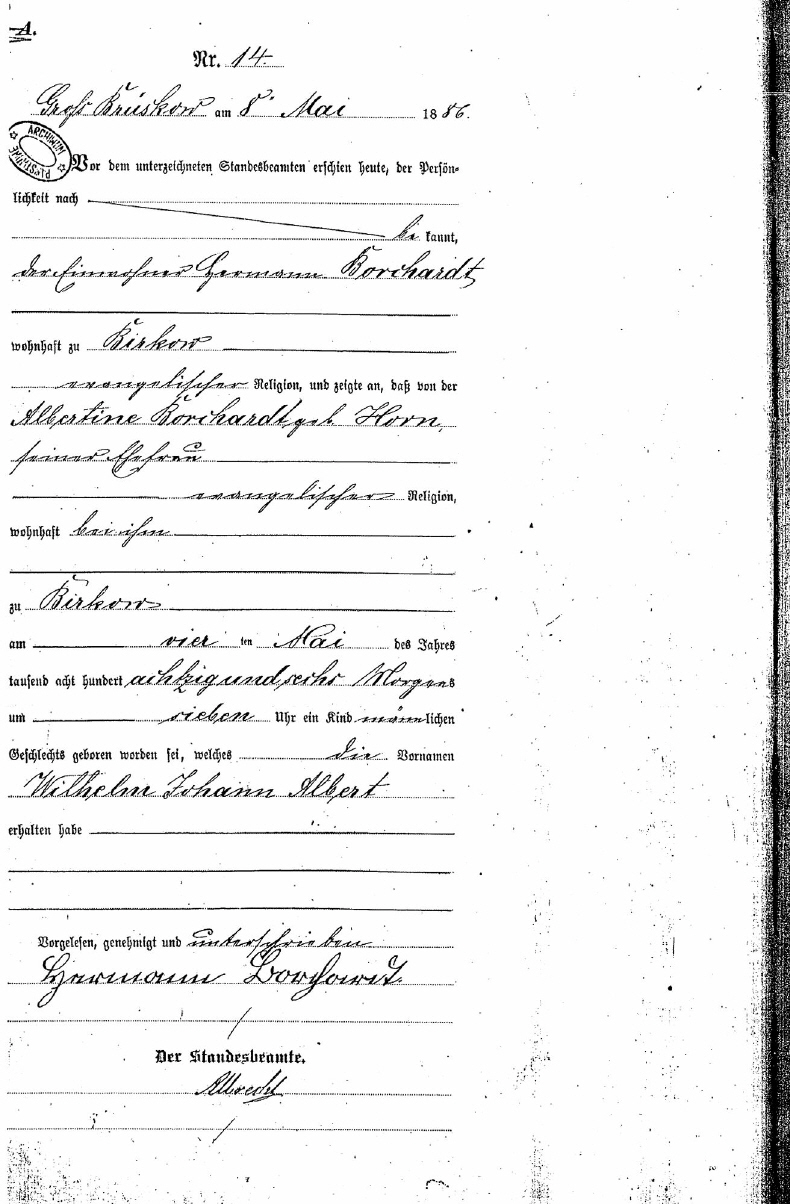 A.
Nr. 14.
Groß Krüskow am 8. Mai 1886.
ARCHIWUM PAŃSTWOWE
Vor dem unterzeichneten Standesbeamten erschien heute, der Persön-
lichkeit nach
bekannt,
der Einwohner Hermann Borchardt
wohnhaft zu Birkow
evangelischer Religion, und zeigte an, daß von der
Albertine Borchardt, geb. Horn,
seiner Ehefrau
evangelischer Religion,
wohnhaft bei ihm
zu Birkow
am vierten Mai des Jahres
tausend acht hundert achtzig und sechs Morgens
um sieben Uhr ein Kind männlichen
Geschlechts geboren worden sei, welches die Vornamen
Wilhelm Johann Albert
erhalten habe
Vorgelesen, genehmigt und unterschrieben
Hermann Borchardt.
Der Standesbeamte.
Albrecht